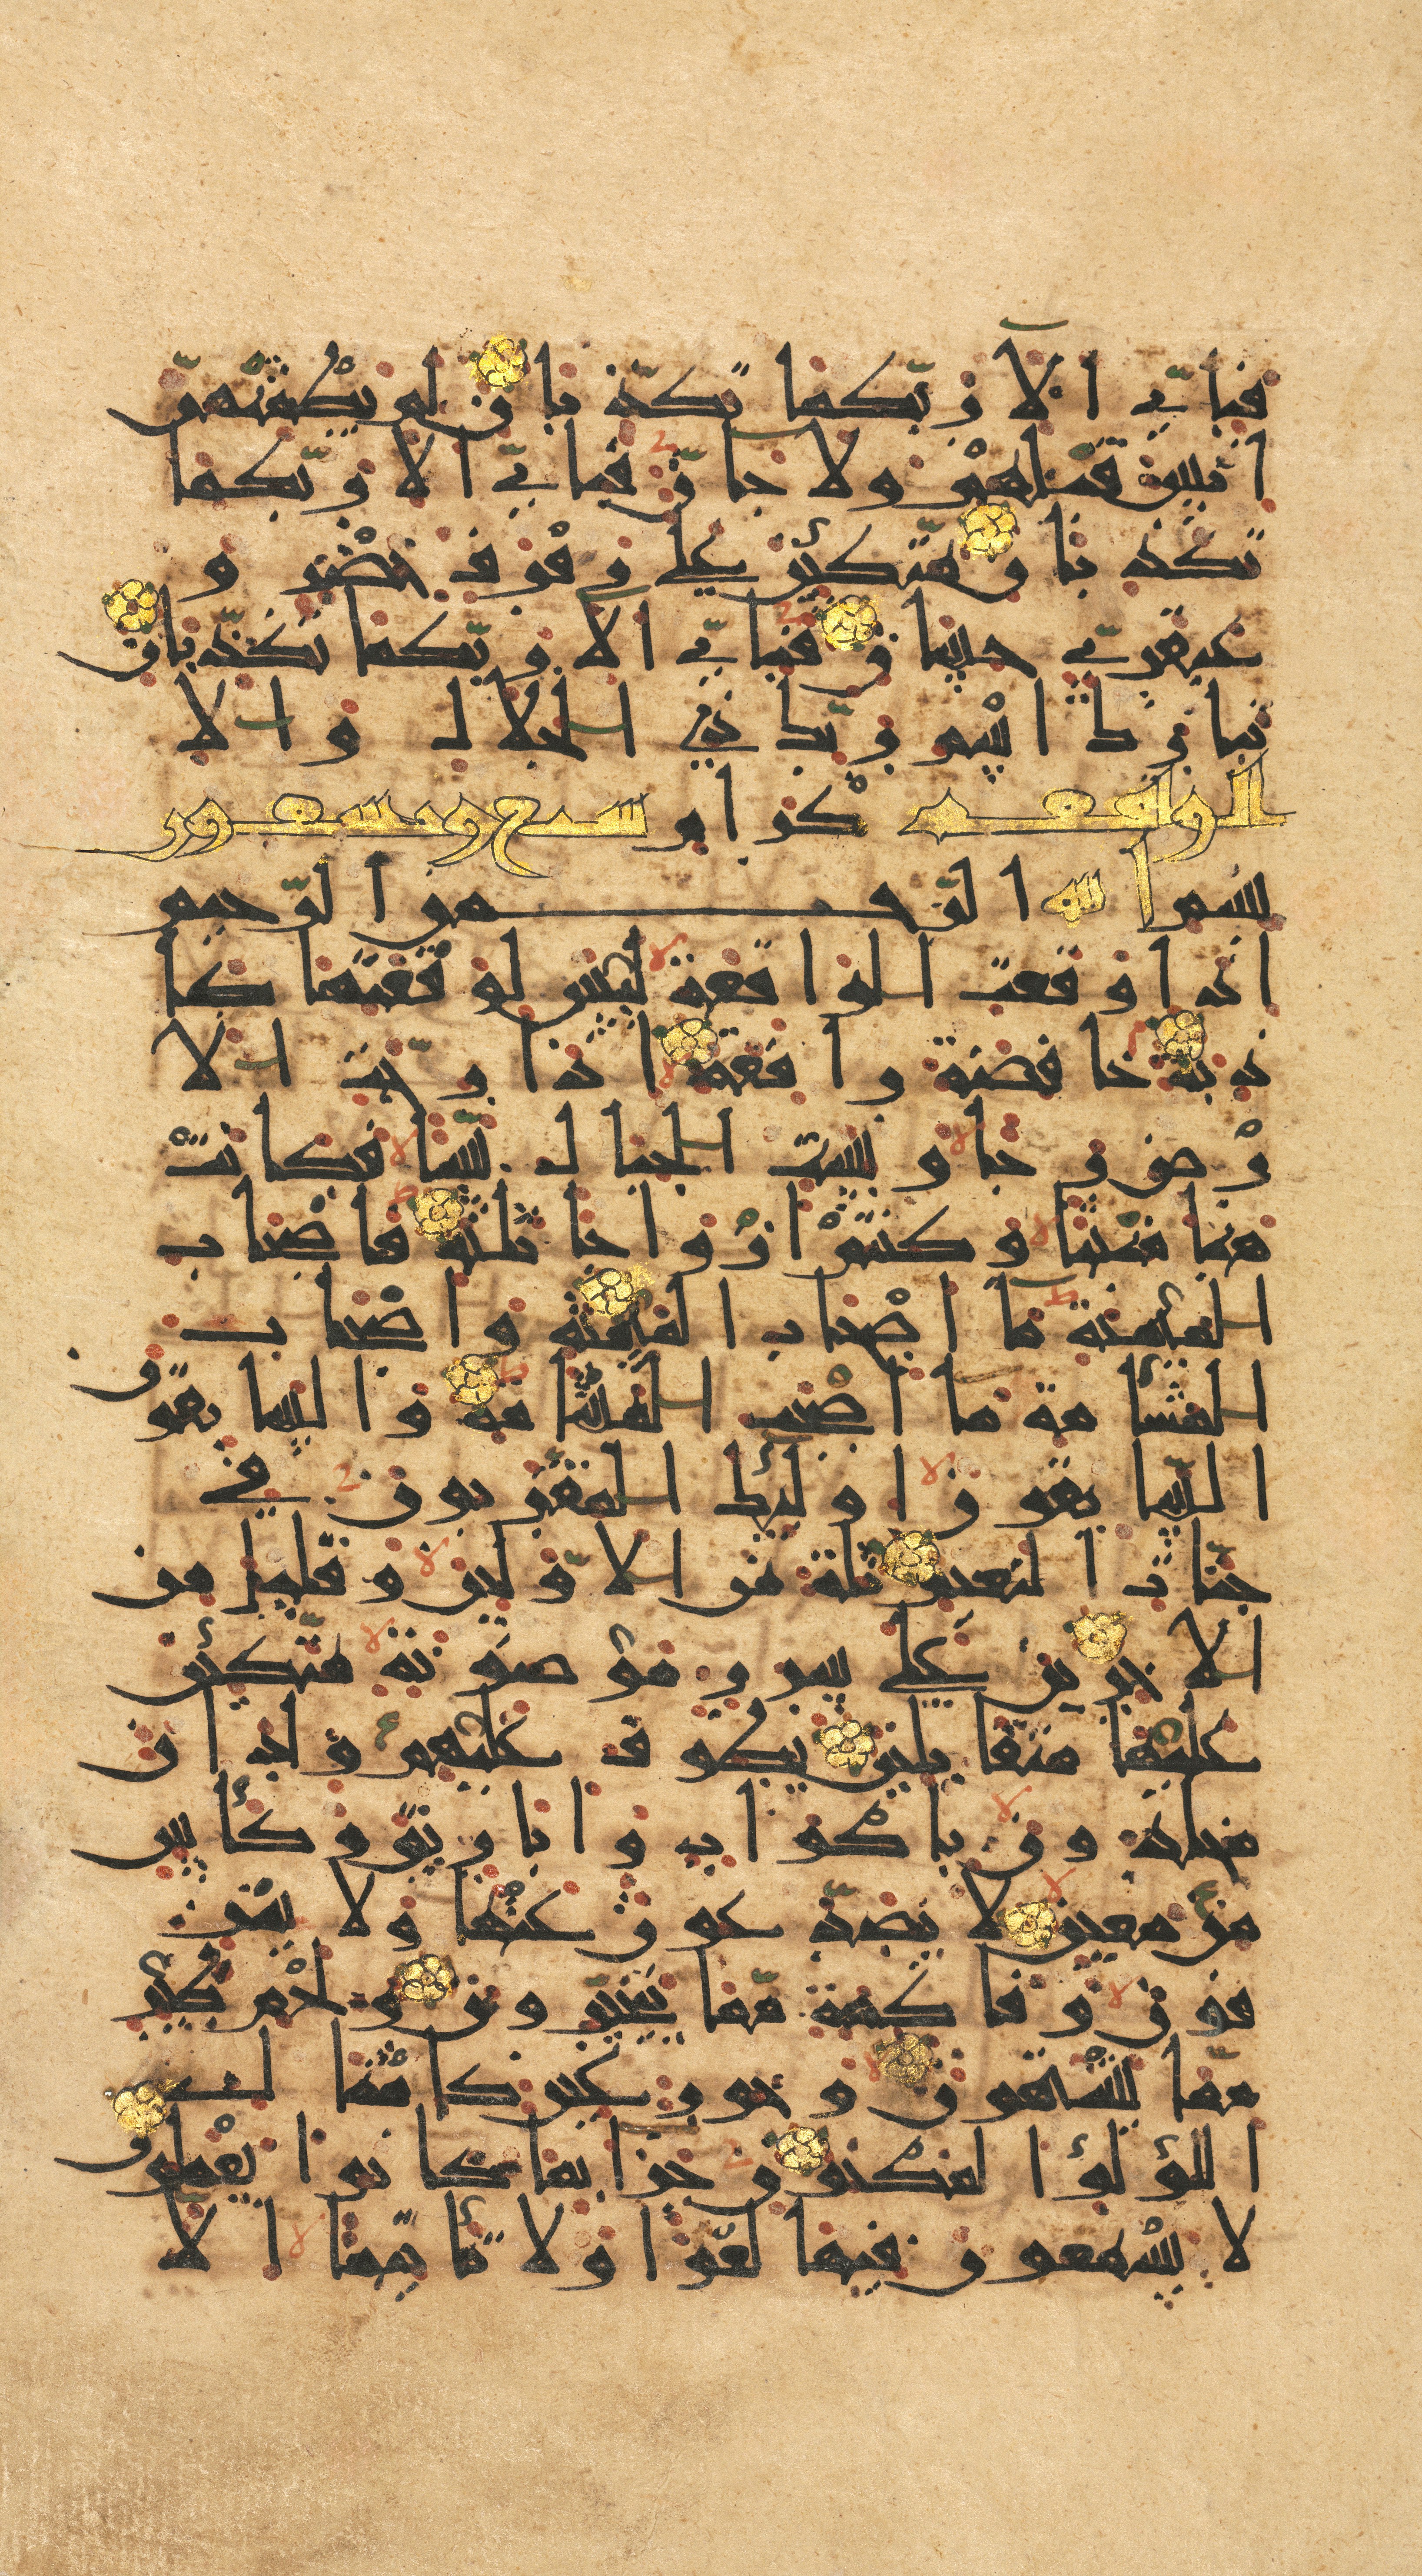 فبأي آلا ربكما تكذبان لم يطمثهن
انس قبلهم ولا جان فبأي آلا ربكما
تكذبان متكئين على رفرف خضر و
عبقري حسان فبأي آلا ربكما تكذبان
تبارك اسم ربك ذي الجلال والا
الواقعة كرام سبع وتسعون
بسم الله الرحمن الرحيم
اذا وقعت الواقعة ليس لوقعتها كا
ذبة خافضة رافعة اذا رجت الا
رض رجا وبست الجبال بسا فكانت
هبا منبثا وكنتم ازواجا ثلثة فاصحاب
الميمنة ما اصحاب الميمنة واصحاب
المشأمة ما اصحب المشأمة والسابقو
السابقون اوليك المقربون في
جنات النعيم ثلة من الاولين وقليل من
الاخرين على سرر موضونة متكئين
عليها متقابلين يطوف عليهم ولدان
مخلدون باكواب واباريق وكأس
من معين لا يصدعون عنها ولا ينز
فون وفاكهة مما يتخيرون ولحم طير
مما يشتهون وحور عين كامثال
اللؤلؤا المكنون جزا بما كانوا يعملون
لا يسمعون فيها لغوا ولا تأثيما الا